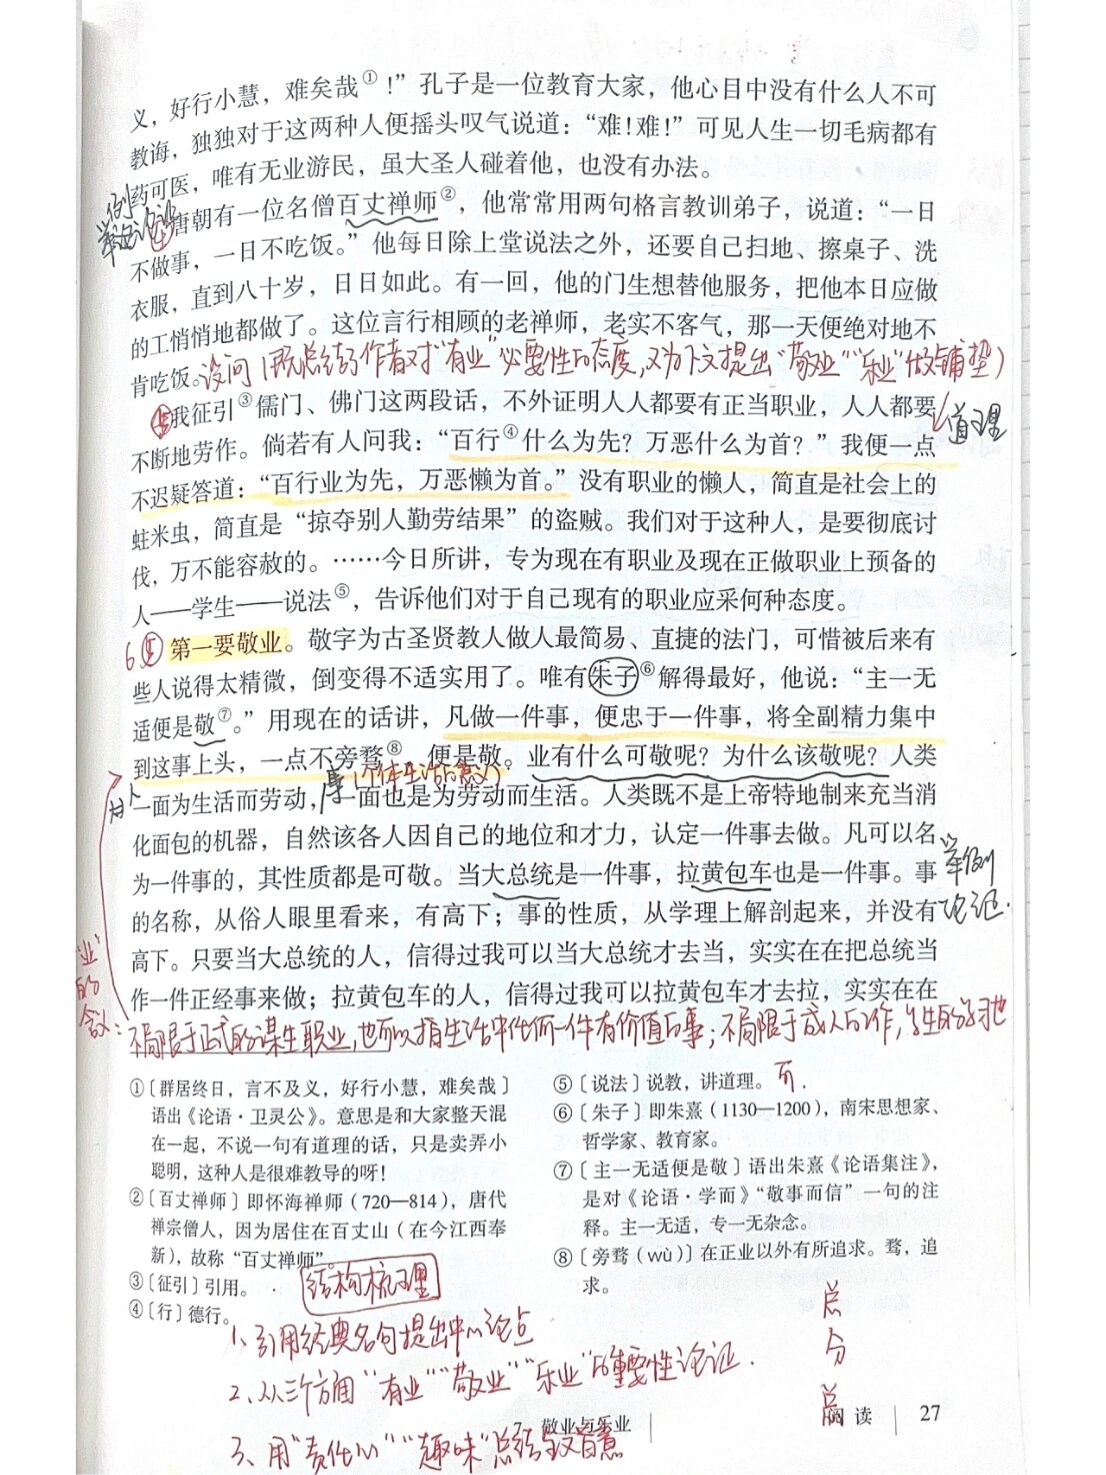 义，好行小慧，难矣哉①！”孔子是一位教育大家，他心目中没有什么人不可
教诲，独独对于这两种人便摇头叹气说道：“难！难！”可见人生一切毛病都有
药可医，唯有无业游民，虽大圣人碰着他，也没有办法。
举例
论证
唐朝有一位名僧百丈禅师②，他常常用两句格言教训弟子，说道：“一日
不做事，一日不吃饭。”他每日除上堂说法之外，还要自己扫地、擦桌子、洗
衣服，直到八十岁，日日如此。有一回，他的门生想替他服务，把他本日应做
的工悄悄地都做了。这位言行相顾的老禅师，老实不客气，那一天便绝对地不
肯吃饭。
设问（既总结了作者对“有业”必要性的态度，又为下文提出“敬业”“乐业”做铺垫）
我征引③儒门、佛门这两段话，不外证明人人都要有正当职业，人人都要
道理
不断地劳作。倘若有人问我：“百行④什么为先？万恶什么为首？”我便一点
不迟疑答道：“百行业为先，万恶懒为首。”没有职业的懒人，简直是社会上的
蛀米虫，简直是“掠夺别人勤劳结果”的盗贼。我们对于这种人，是要彻底讨
伐，万不能容赦的。……今日所讲，专为现在有职业及现在正做职业上预备的
人——学生——说法⑤，告诉他们对于自己现有的职业应采何种态度。
6 第一要敬业。敬字为古圣贤教人做人最简易、直捷的法门，可惜被后来有
些人说得太精微，倒变得不适实用了。唯有朱子⑥解得最好，他说：“主一无
适便是敬⑦。”用现在的话讲，凡做一件事，便忠于一件事，将全副精力集中
到这事上头，一点不旁骛⑧，便是敬。业有什么可敬呢？为什么该敬呢？人类
为人
事（个体生活的意义）
一面为生活而劳动，一面也是为劳动而生活。人类既不是上帝特地制来充当消
化面包的机器，自然该各人因自己的地位和才力，认定一件事去做。凡可以名
为一件事的，其性质都是可敬。当大总统是一件事，拉黄包车也是一件事。事
举例
论证.
的名称，从俗人眼里看来，有高下；事的性质，从学理上解剖起来，并没有
高下。只要当大总统的人，信得过我可以当大总统才去当，实实在在把总统当
作一件正经事来做；拉黄包车的人，信得过我可以拉黄包车才去拉，实实在在
“业”
的
含义：不局限于正式的谋生职业，也可以指生活中任何一件有价值的事；不局限于成人的工作，学生的学习也
可.
①〔群居终日，言不及义，好行小慧，难矣哉〕
语出《论语·卫灵公》。意思是和大家整天混
在一起，不说一句有道理的话，只是卖弄小
聪明，这种人是很难教导的呀！
②〔百丈禅师〕即怀海禅师（720—814），唐代
禅宗僧人，因为居住在百丈山（在今江西奉
新），故称“百丈禅师”。
③〔征引〕引用。
④〔行〕德行。
⑤〔说法〕说教，讲道理。
⑥〔朱子〕即朱熹（1130—1200），南宋思想家、
哲学家、教育家。
⑦〔主一无适便是敬〕语出朱熹《论语集注》，
是对《论语·学而》“敬事而信”一句的注
释。主一无适，专一无杂念。
⑧〔旁骛（wù）〕在正业以外有所追求。骛，追
求。
结构梳理
1、引用经典名句提出中心论点
2、从三个方面“有业”“敬业”“乐业”的重要性论证.
3、用“责任心”“趣味”总结全文旨意
总
分
总
7 敬业与乐业
阅读 27